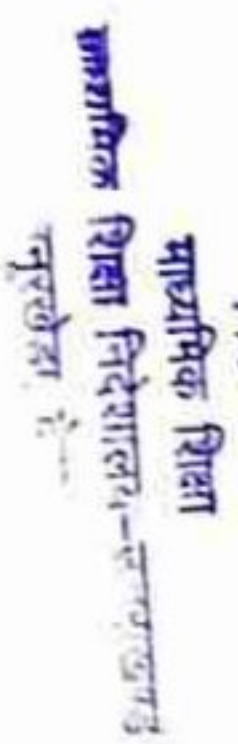 माध्यमिक शिक्षा
माध्यमिक शिक्षा निदेशालय-उत्तराखण्ड